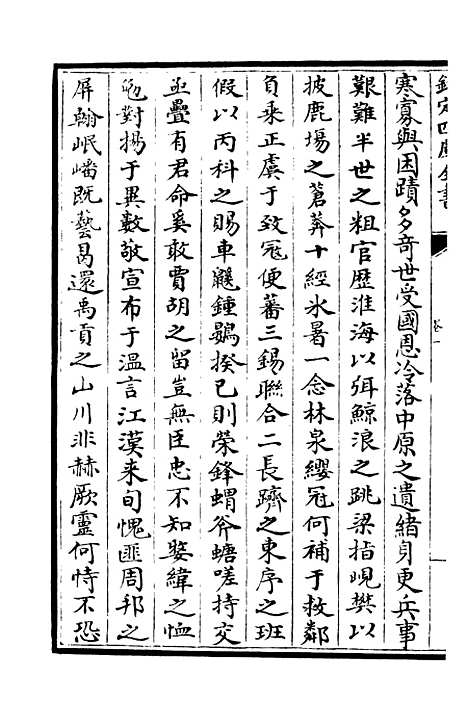 欽定四庫全書
卷一
寒寡與困蹟多奇世受國恩冷落中原之遺緒身更兵事
艱難半世之粗官歷淮海以弭鯨浪之跳梁指峴樊以
披鹿場之蒼莽十經氷暑一念林泉纓冠何補于救鄰
負乘正虞于致冦便蕃三錫聯合二長躋之東序之班
假以丙科之賜車颷鍾鶚揆已則榮鋒蝟斧螗嗟持交
亟疊有君命奚敢費胡之留豈無臣忠不知嫠緯之恤
勉對揚于異數敬宣布于温言江漢来旬愧匪周邦之
屏翰岷嶓既藝曷還禹貢之山川非赫厥靈何恃不恐